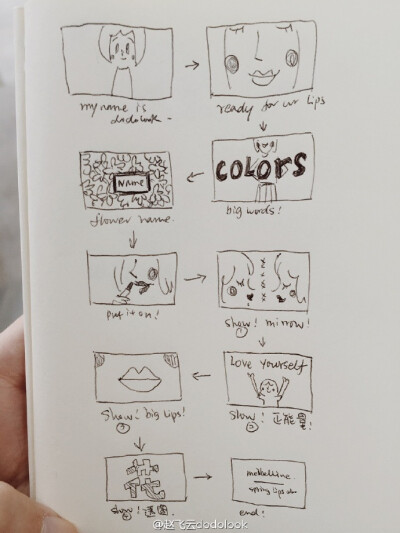 my name is
dodolook~
ready for ur lips
COLORS
NAME
big words!
flower name.
put it on!
show! mirrow!
①
LOVE YOURSELF
show! big lips!
③
show! 正能量!
②
花
maybelline
spring lips
show!
end!
@赵飞云dodolook